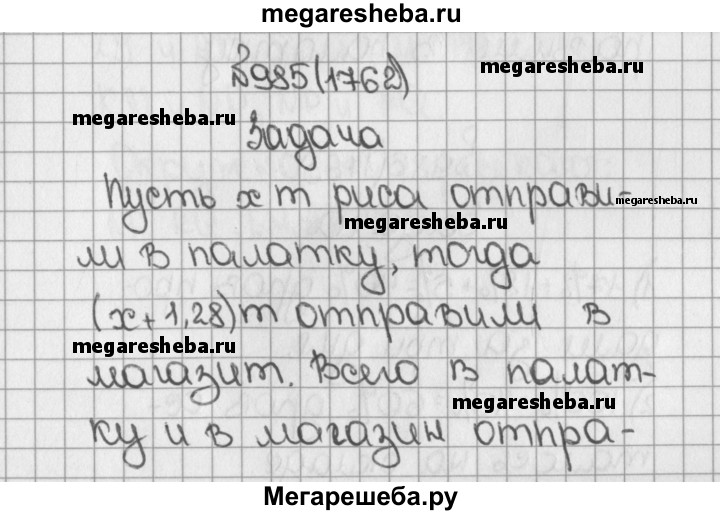 megaresheba.ru
№985(1762)
megaresheba.ru
megaresheba.ru
Задача
Пусть x т риса отправи-
megaresheba.ru
megaresheba.ru
ли в палатку, тогда
(x+1,28)т отправили в
megaresheba.ru
магазит. Всего в палат-
megaresheba.ru
ку и в магазин отпра-
Мегарешеба.ру